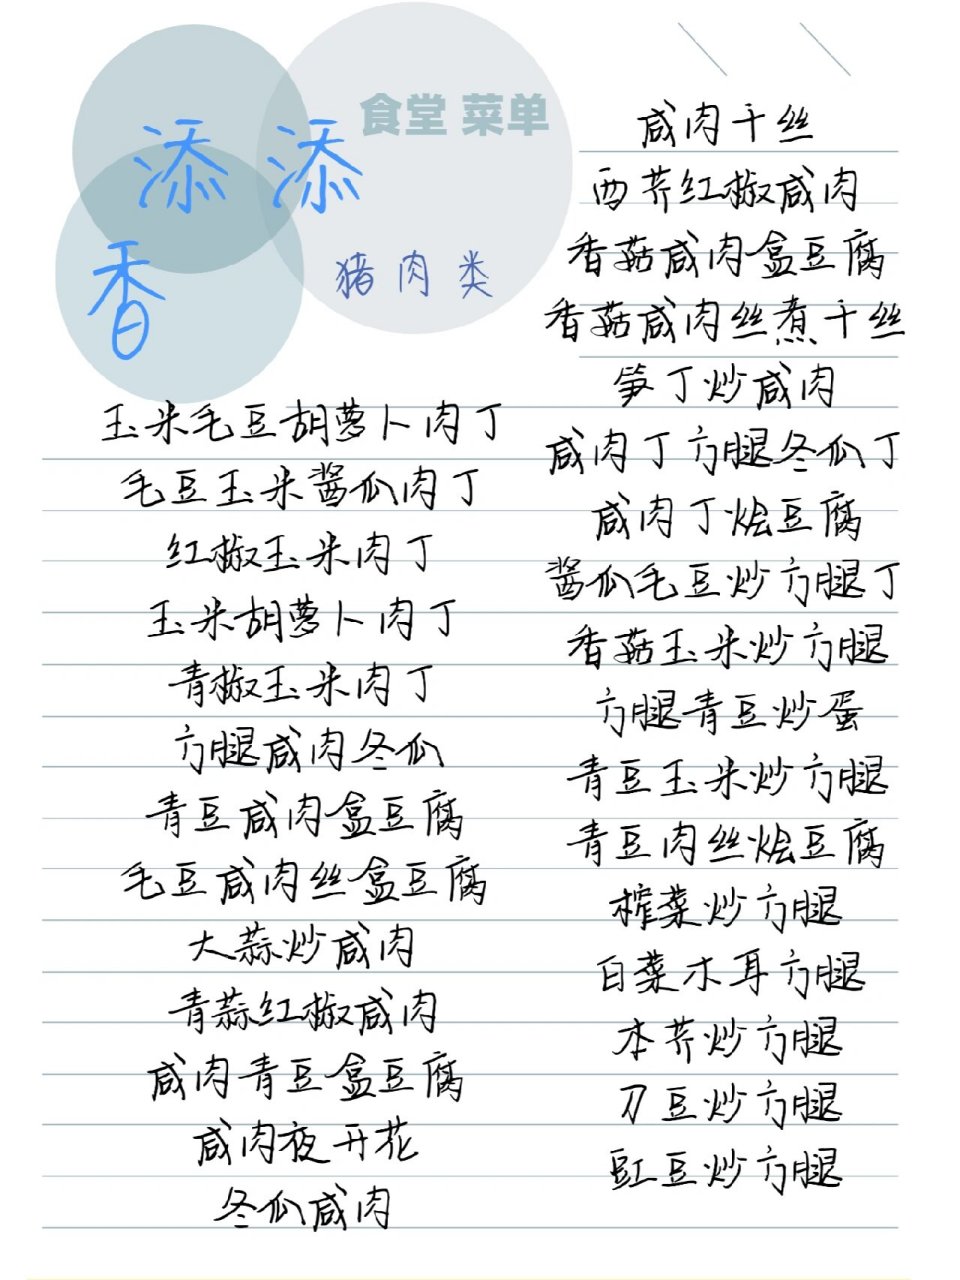 食堂 菜单
添添
香
猪肉类
玉米毛豆胡萝卜肉丁
毛豆玉米酱瓜肉丁
红椒玉米肉丁
玉米胡萝卜肉丁
青椒玉米肉丁
方腿咸肉冬瓜
青豆咸肉盒豆腐
毛豆咸肉丝盒豆腐
大蒜炒咸肉
青蒜红椒咸肉
咸肉青豆盒豆腐
咸肉夜开花
冬瓜咸肉
咸肉干丝
西芹红椒咸肉
香菇咸肉盒豆腐
香菇咸肉丝煮干丝
笋丁炒咸肉
咸肉丁方腿冬瓜丁
咸肉丁烩豆腐
酱瓜毛豆炒方腿丁
香菇玉米炒方腿
方腿青豆炒蛋
青豆玉米炒方腿
青豆肉丝烩豆腐
榨菜炒方腿
白菜木耳方腿
本芹炒方腿
刀豆炒方腿
豇豆炒方腿